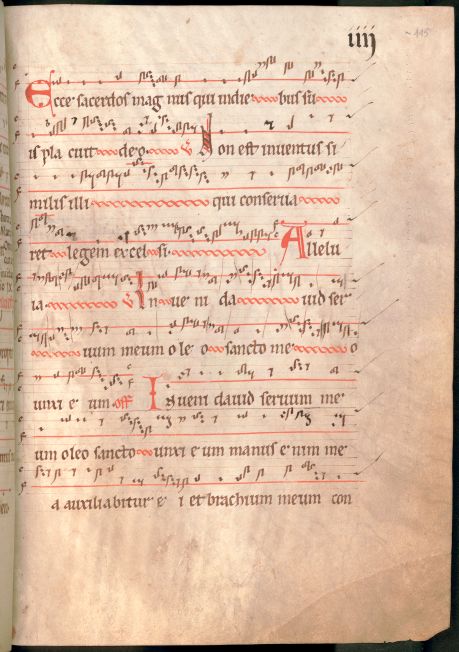 iiij
~115
Ecce sacerdos mag nus qui in die bus su
is pla cuit deo. V Non est inventus si
milis illi qui conserva
ret legem excel si. Allelu
ia V In ve ni da vid ser
vum meum o le o sancto me o
unxi e um off Inveni david servum me
um oleo sancto unxi e um manus e nim me
a auxiliabitur e i et brachium meum con